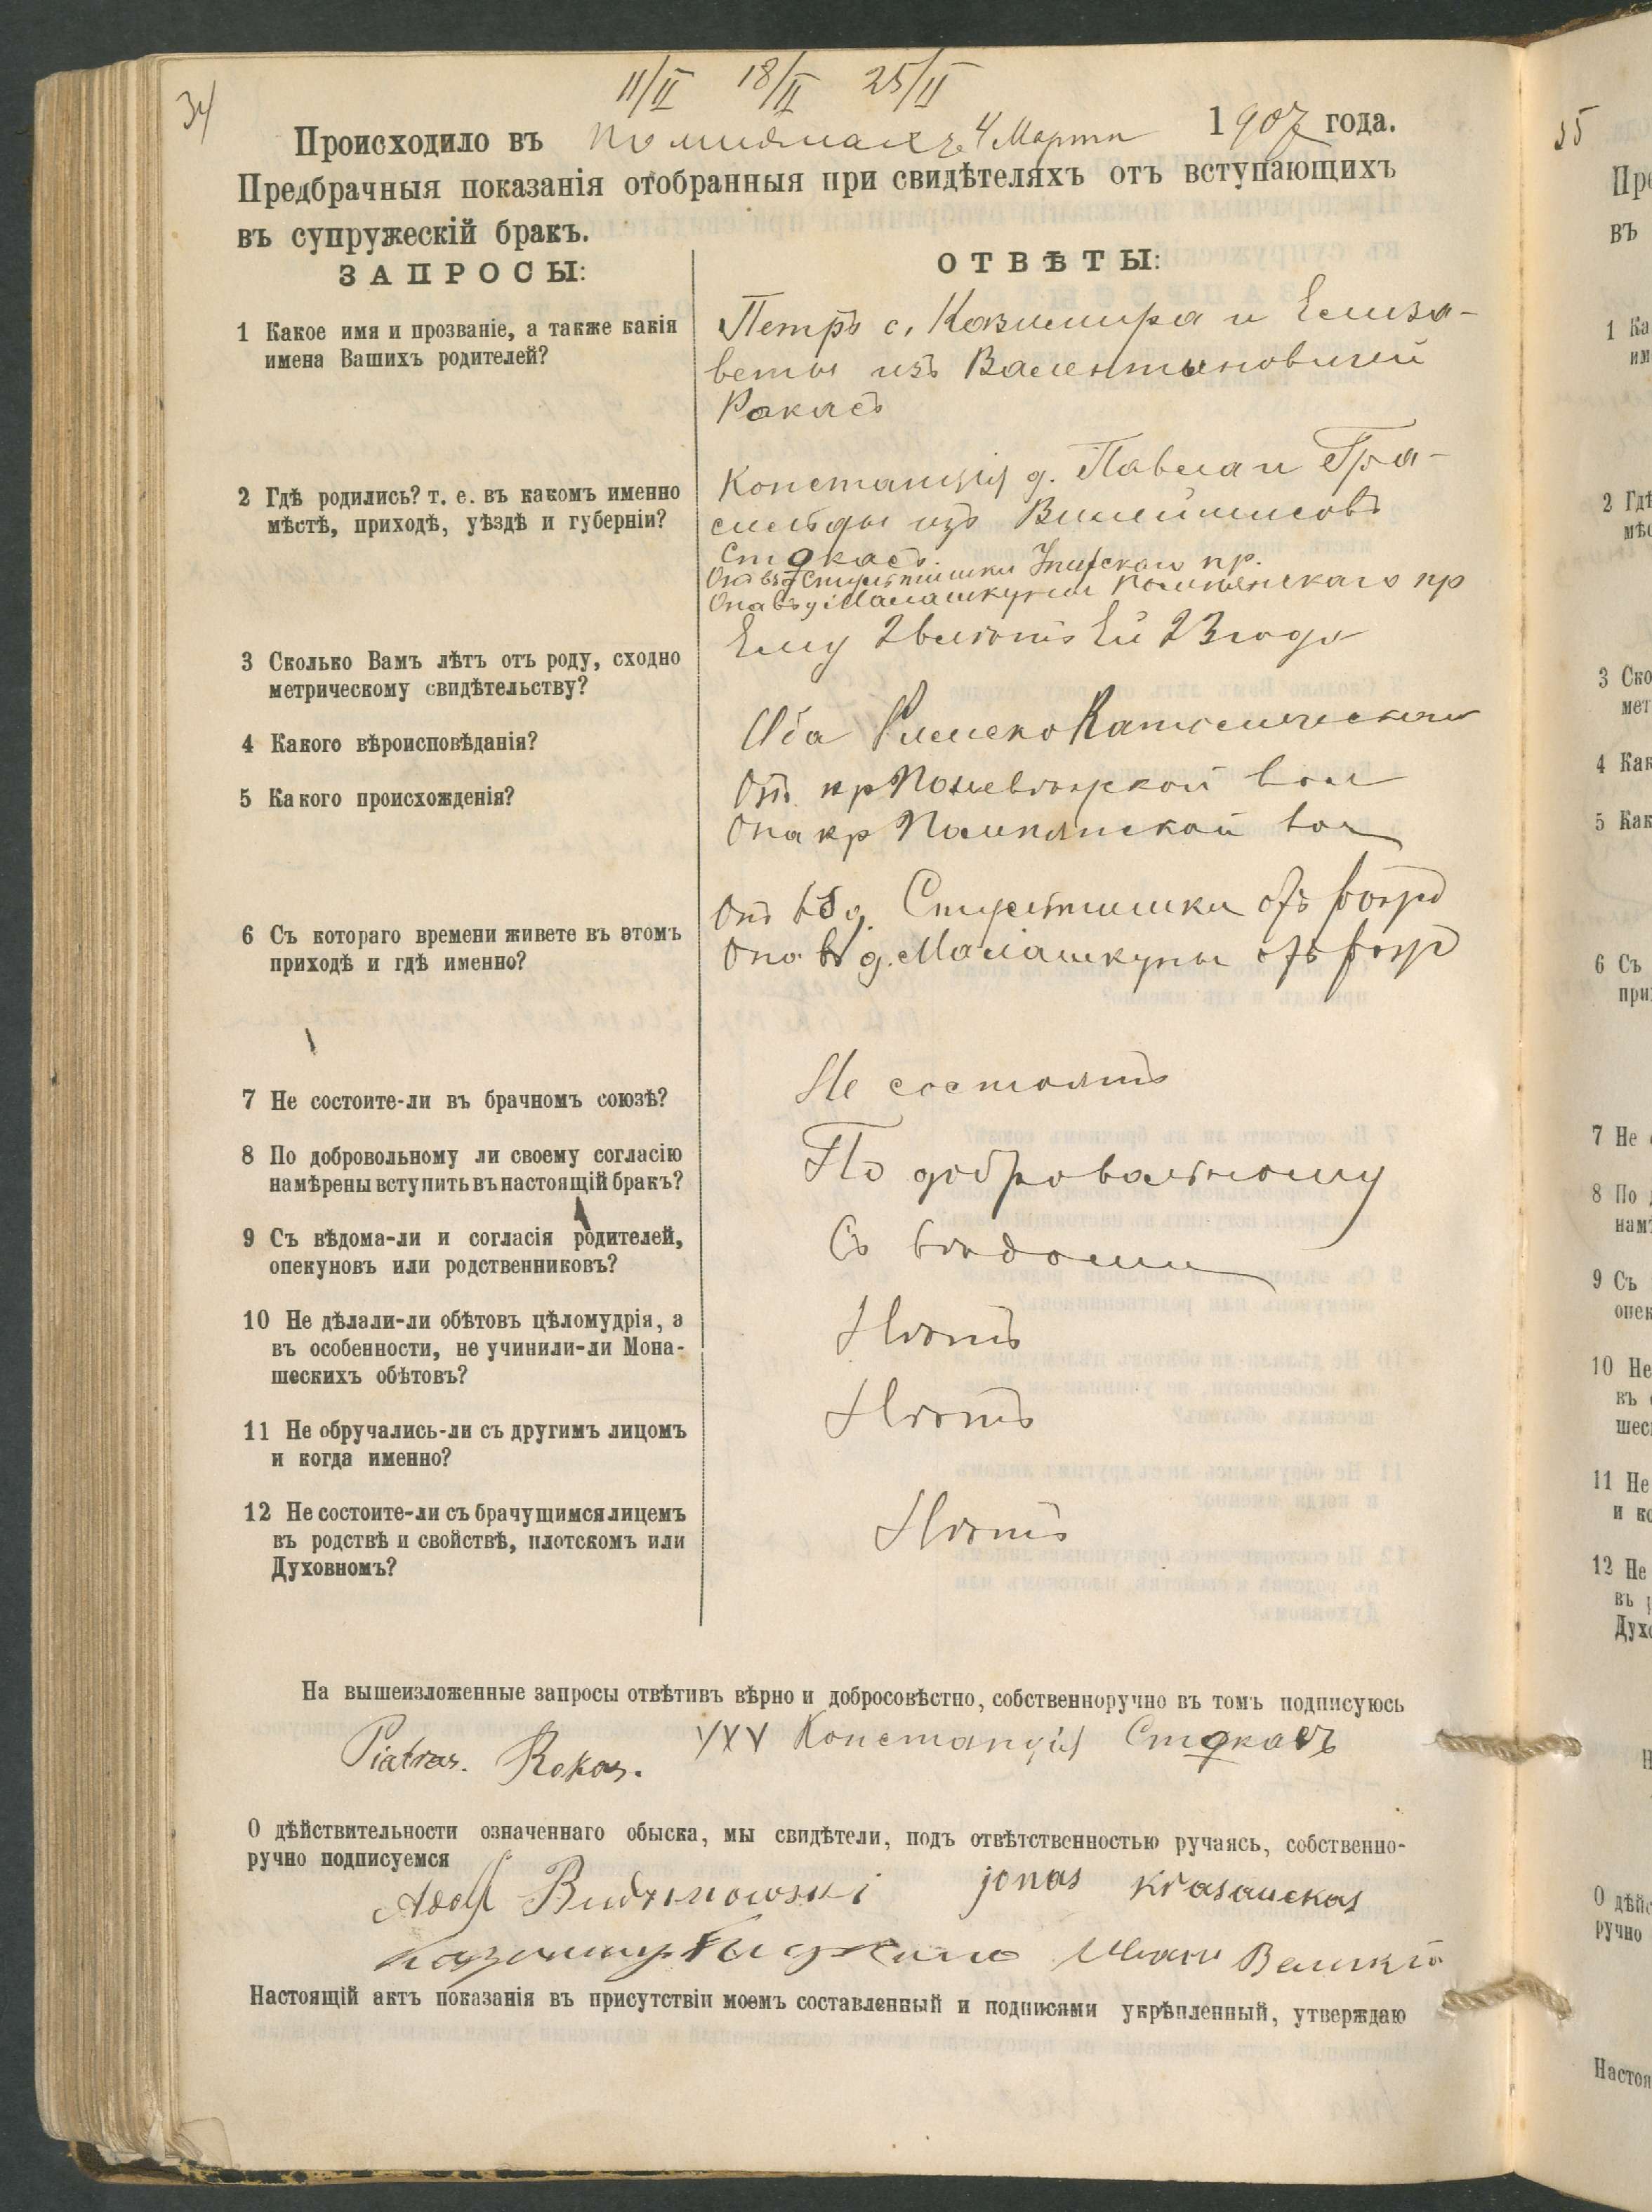 34
11/II 18/II 25/II
Происходило въ Помпянахъ 4 Марта 1907 года.
Предбрачныя показанія отобранныя при свидѣтеляхъ отъ вступающихъ
въ супружескій бракъ.
ЗАПРОСЫ:
ОТВѢТЫ:
1 Какое имя и прозваніе, а также какія
имена Вашихъ родителей?
Петръ с. Казимира и Елиза-
веты изъ Валентыновичей
Рокасъ
2 Гдѣ родились? т. е. въ какомъ именно
мѣстѣ, приходѣ, уѣздѣ и губерніи?
Констанція д. Павла и Гра-
сильды изъ
Стокасъ.
Онъ въ д пр.
Она въ д Малашкуни Помпянскаго пр
3 Сколько Вамъ лѣтъ отъ роду, сходно
метрическому свидѣтельству?
Ему лѣтъ Ей 23 года
4 Какого вѣроисповѣданія?
Оба Римско Католическаго
5 Какого происхожденія?
Онъ кр вол
Она кр Помпянской вол
6 Съ котораго времени живете въ этомъ
приходѣ и гдѣ именно?
Онъ въ д. отъ
Она въ д. Малашкуны отъ
7 Не состоите-ли въ брачномъ союзѣ?
Не состоятъ
8 По добровольному ли своему согласію
намѣрены вступить въ настоящій бракъ?
По добровольному
9 Съ вѣдома-ли и согласія родителей,
опекуновъ или родственниковъ?
Съ вѣдома
10 Не дѣлали-ли обѣтовъ цѣломудрія, а
въ особенности, не учинили-ли Мона-
шескихъ обѣтовъ?
Нѣтъ
11 Не обручались-ли съ другимъ лицомъ
и когда именно?
Нѣтъ
12 Не состоите-ли съ брачущимся лицемъ
въ родствѣ и свойствѣ, плотскомъ или
Духовномъ?
Нѣтъ
На вышеизложенные запросы отвѣтивъ вѣрно и добросовѣстно, собственноручно въ томъ подписуюсь
Piatras. Rokas. XXX Констанція Стокасъ
О дѣйствительности означеннаго обыска, мы свидѣтели, подъ отвѣтственностью ручаясь, собственно-
ручно подписуемся
Adolf jonas krasauckas
Казимир Иван
Настоящій актъ показанія въ присутствіи моемъ составленный и подписями укрѣпленный, утверждаю
35